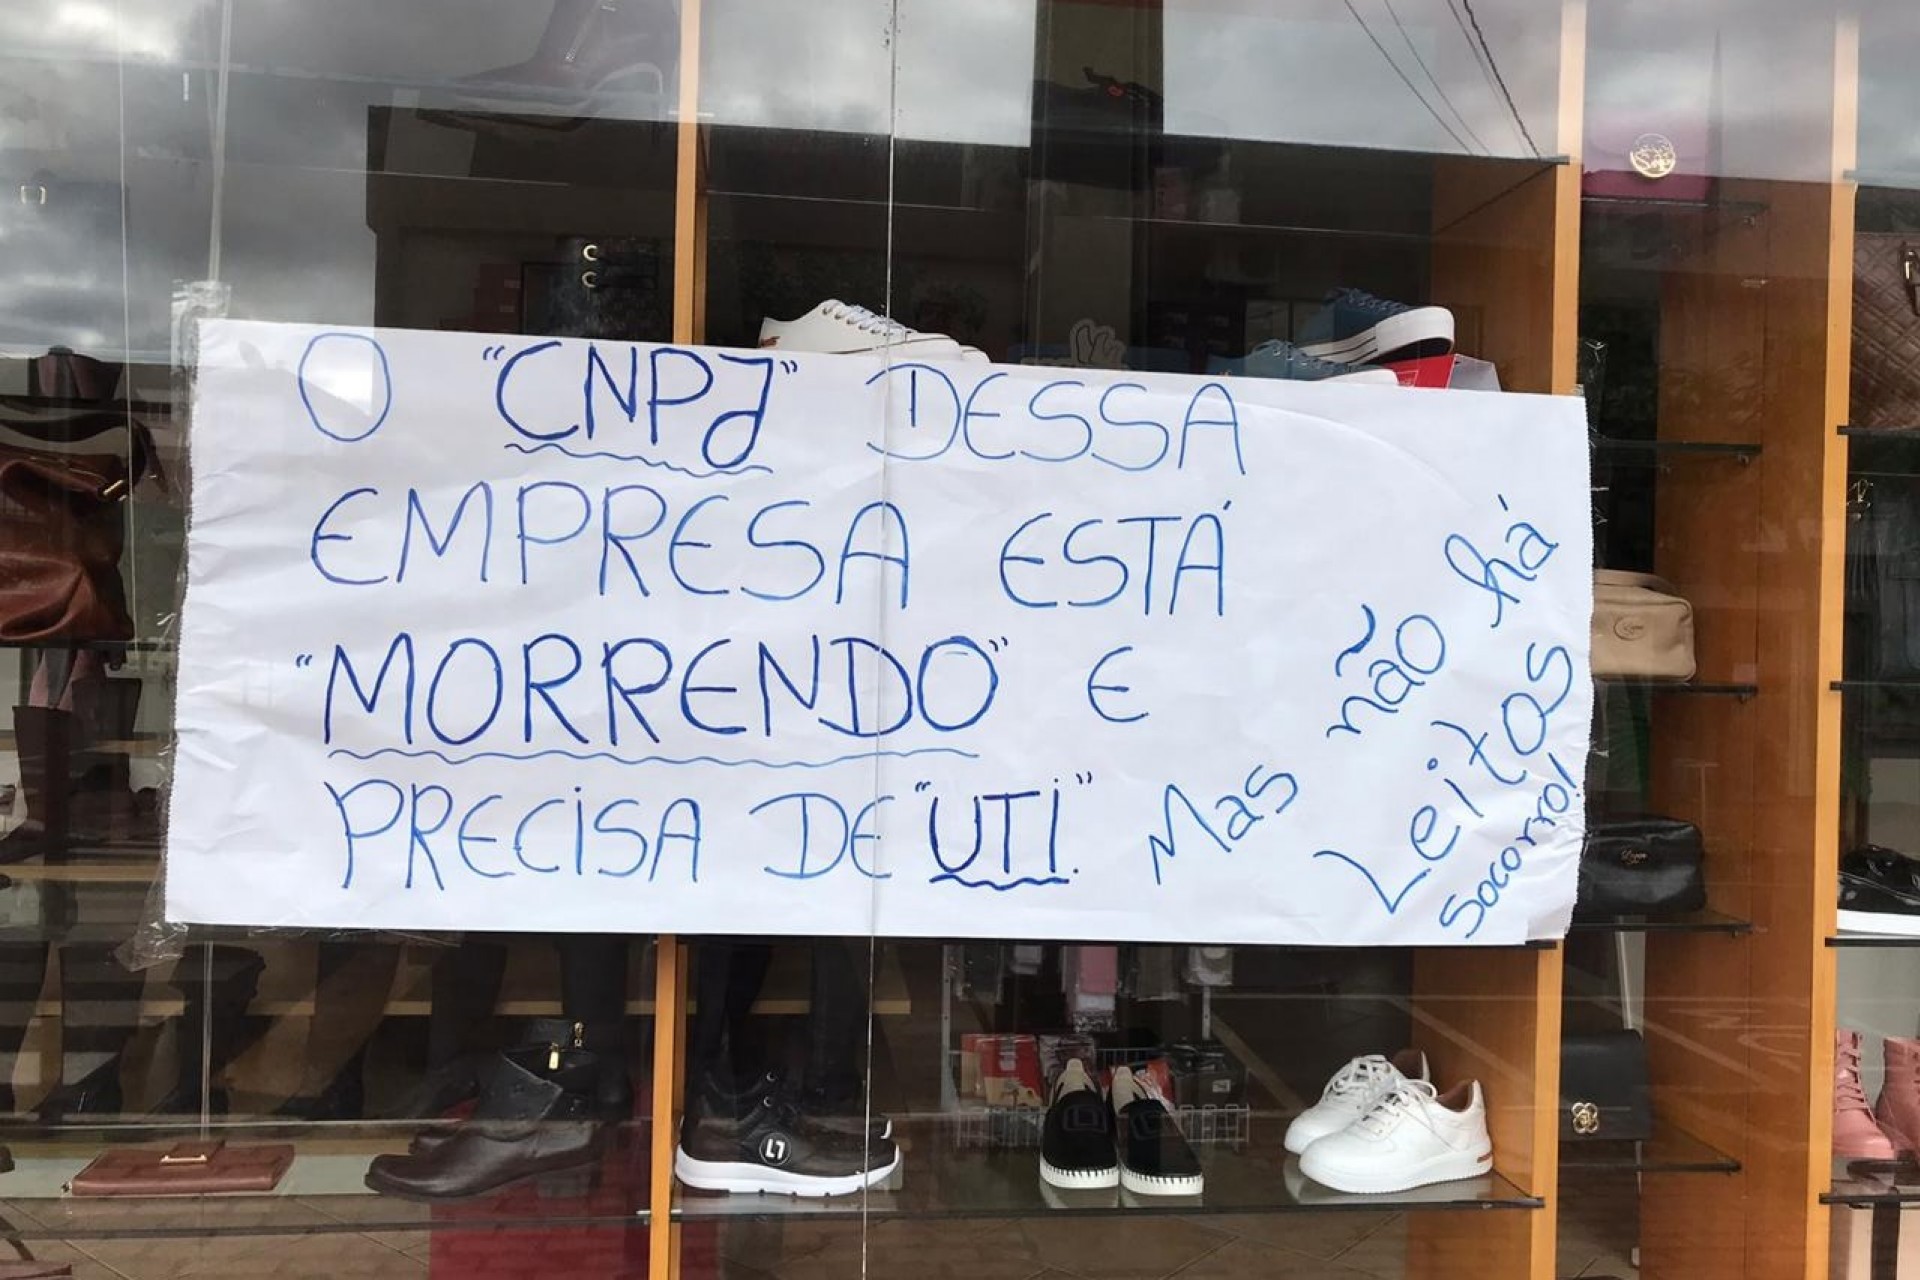 O "CNPJ" DESSA
EMPRESA ESTÁ
"MORRENDO" E
PRECISA DE "UTI."
Mas não há
Leitos
Socorro!